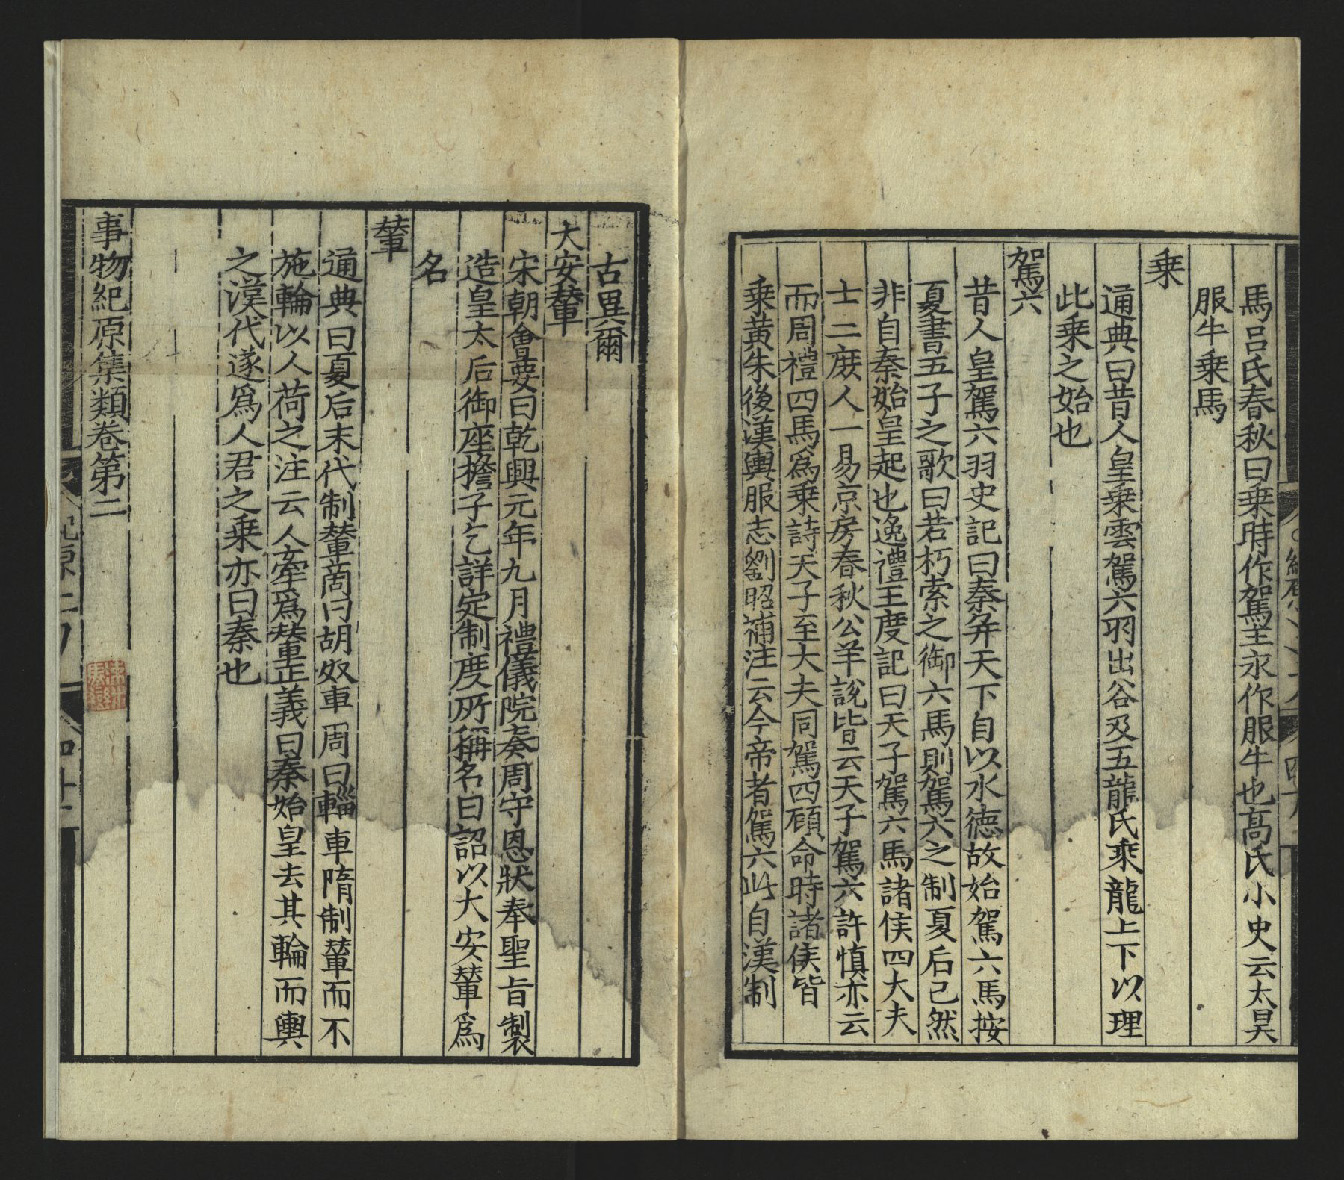 馬呂氏春秋曰乗時作駕王氷作服牛也高氏小史云太昊
服牛乗馬
乗
通典曰昔人皇乗雲駕六羽出谷及五龍氏乗龍上下以理
此乗之始也
駕六
昔人皇駕六羽史記曰秦并天下自以水徳故始駕六馬按
夏書五子之歌曰若朽索之御六馬則駕六之制夏后已然
非自秦始皇起也逸禮王度記曰天子駕六馬諸侯四大夫
士二庶人一易京房春秋公羊說皆云天子駕六許慎亦云
而周禮四馬爲乗詩天子至大夫同駕四顧命時諸侯皆
乗黄朱後漢輿服志劉昭補注云今帝者駕六此自漢制
古異爾
大安輦
宋朝會要曰乾興元年九月禮儀院奏周守恩狀奉聖旨製
造皇太后御座擔子乞詳定制度所稱名曰詔以大安輦爲
名
輦
通典曰夏后末代制輦商曰胡奴車周曰輜車隋制輦而不
施輪以人荷之注云人牽爲輦正義曰秦始皇去其輪而輿
之漢代遂爲人君之乗亦曰秦也
事物紀原集類卷第二
紀原二